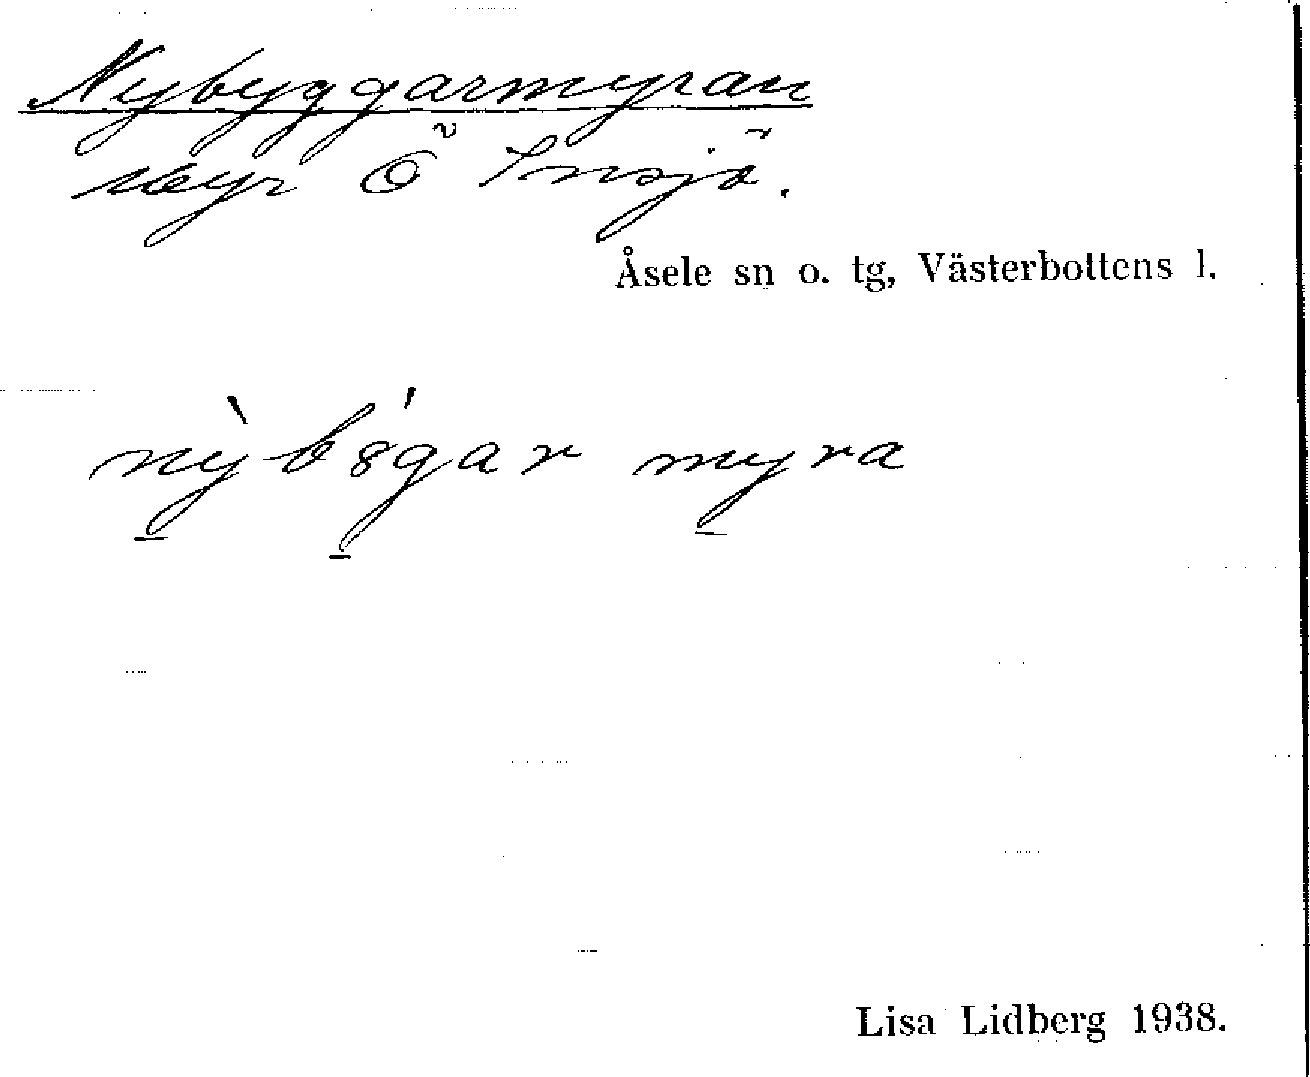 Nybyggarmyran
Myr Ö Insjö.
Åsele sn o. tg, Västerbottens l.
myra
Lisa Lidberg 1938.